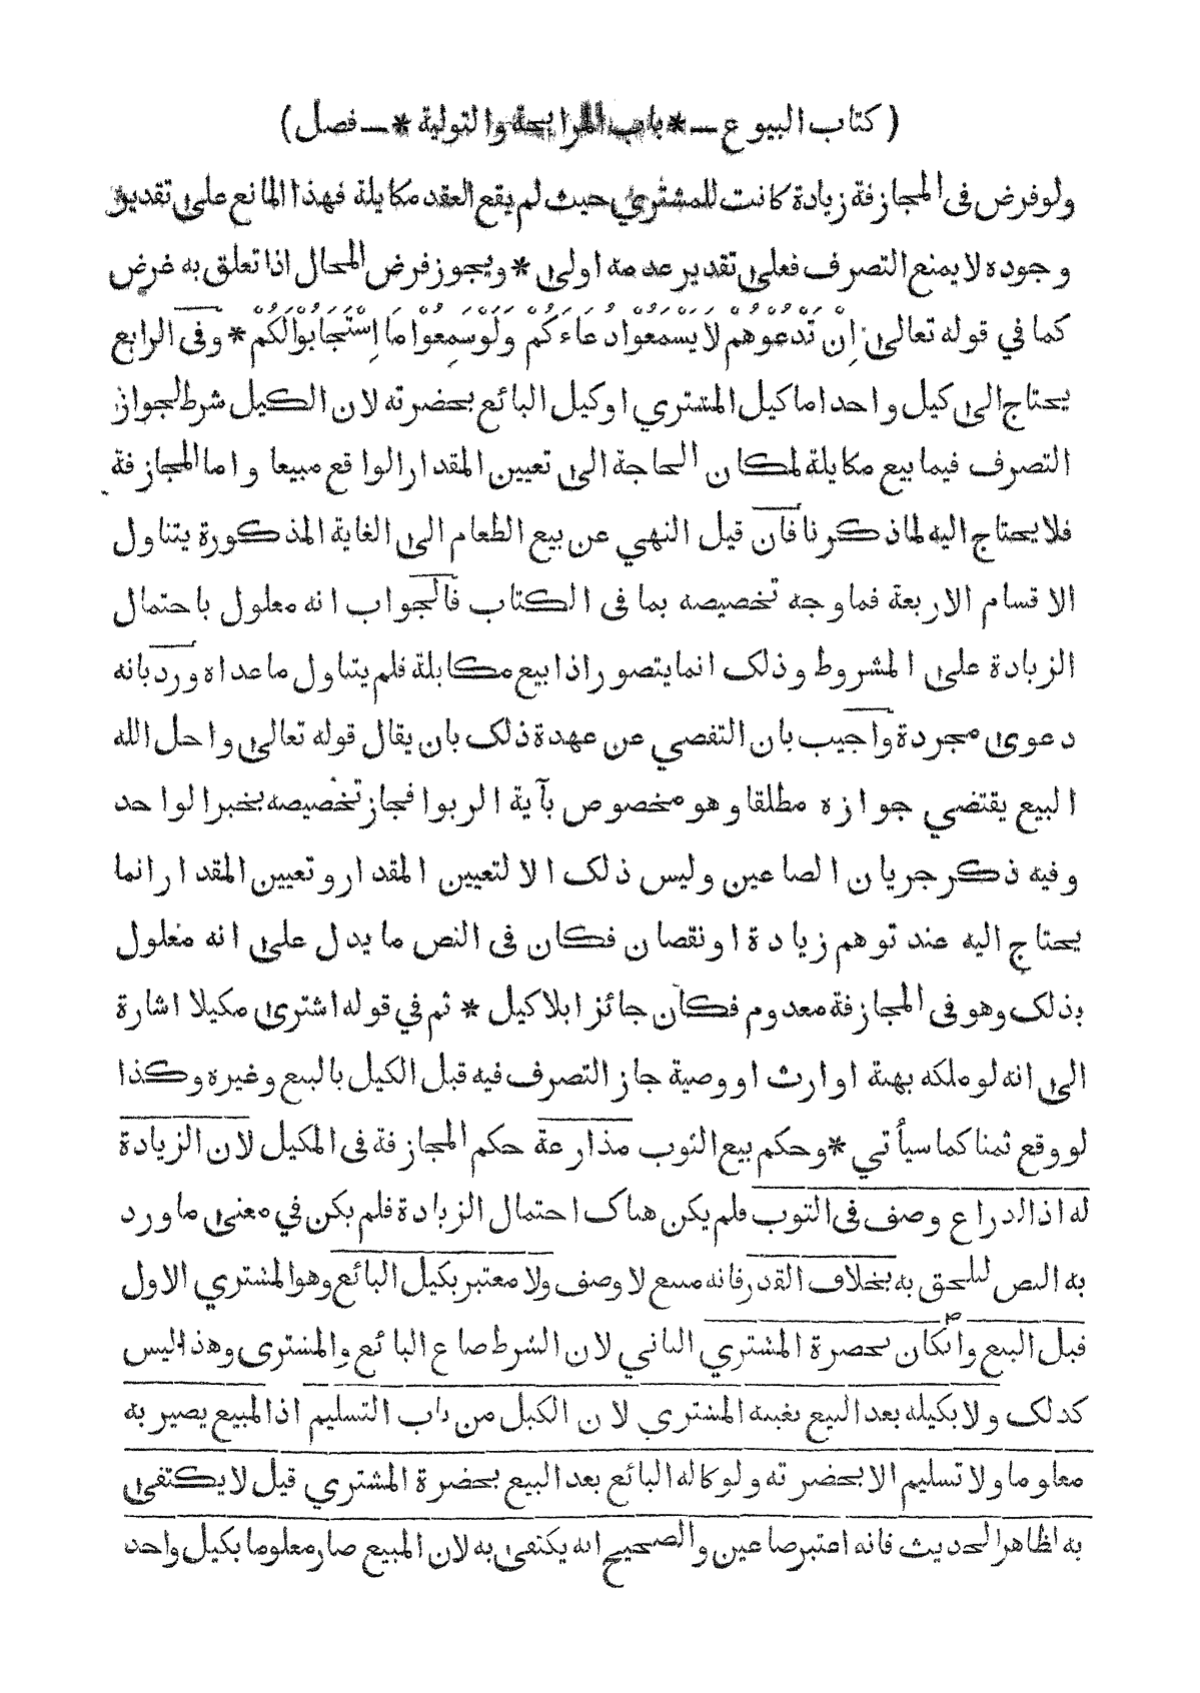 ( كتاب البيوع — * باب المرابحة والتولية * — فصل )
ولو فرض فى المجازفة زيادة كانت للمشتري حيث لم يقع العقد مكايلة فهذا المانع على تقدير
وجوده لا يمنع التصرف فعلى تقدير عدمه اولى * ويجوز فرض المحال اذا تعلق به غرض
كما في قوله تعالى اِنْ تَدْعُوْهُمْ لَا يَسْمَعُوْا دُعَاءَكُمْ وَلَوْ سَمِعُوْا مَا اِسْتَجَابُوْا لَكُمْ * وفى الرابع
يحتاج الى كيل واحد اما كيل المشتري او كيل البائع بحضرته لان الكيل شرط لجواز
التصرف فيما بيع مكايلة لمكان الحاجة الى تعيين المقدار الواقع مبيعا واما المجازفة
فلا يحتاج اليه لما ذكرنا فان قيل النهي عن بيع الطعام الى الغاية المذكورة يتناول
الاقسام الاربعة فما وجه تخصيصه بما فى الكتاب فالجواب انه معلول باحتمال
الزيادة على المشروط وذلك انما يتصور اذا بيع مكايلة فلم يتناول ما عداه ورد بانه
دعوى مجردة واجيب بان التفصي عن عهدة ذلك بان يقال قوله تعالى واحل الله
البيع يقتضي جوازه مطلقا وهو مخصوص بآية الربوا فجاز تخصيصه بخبر الواحد
وفيه ذكر جريان الصاعين وليس ذلك الا لتعيين المقدار وتعيين المقدار انما
يحتاج اليه عند توهم زيادة او نقصان فكان فى النص ما يدل على انه معلول
بذلك وهو فى المجازفة معدوم فكان جائزا بلا كيل * ثم في قوله اشترى مكيلا اشارة
الى انه لو ملكه بهبة او ارث او وصية جاز التصرف فيه قبل الكيل بالبيع وغيره وكذا
لو وقع ثمنا كما سيأتي * وحكم بيع الثوب مذارعة حكم المجازفة فى المكيل لان الزيادة
له اذ الذراع وصف فى الثوب فلم يكن هناك احتمال الزيادة فلم يكن في معنى ما ورد
به النص ليلحق به بخلاف القدر فانه مبيع لا وصف ولا معتبر بكيل البائع وهو المشتري الاول
قبل البيع وان كان بحضرة المشتري الثاني لان الشرط صاع البائع والمشترى وهذا ليس
كذلك ولا بكيله بعد البيع بغيبة المشتري لان الكيل من باب التسليم اذ المبيع يصير به
معلوما ولا تسليم الا بحضرته ولو كاله البائع بعد البيع بحضرة المشتري قيل لا يكتفى
به لظاهر الحديث فانه اعتبر صاعين والصحيح انه يكتفى به لان المبيع صار معلوما بكيل واحد